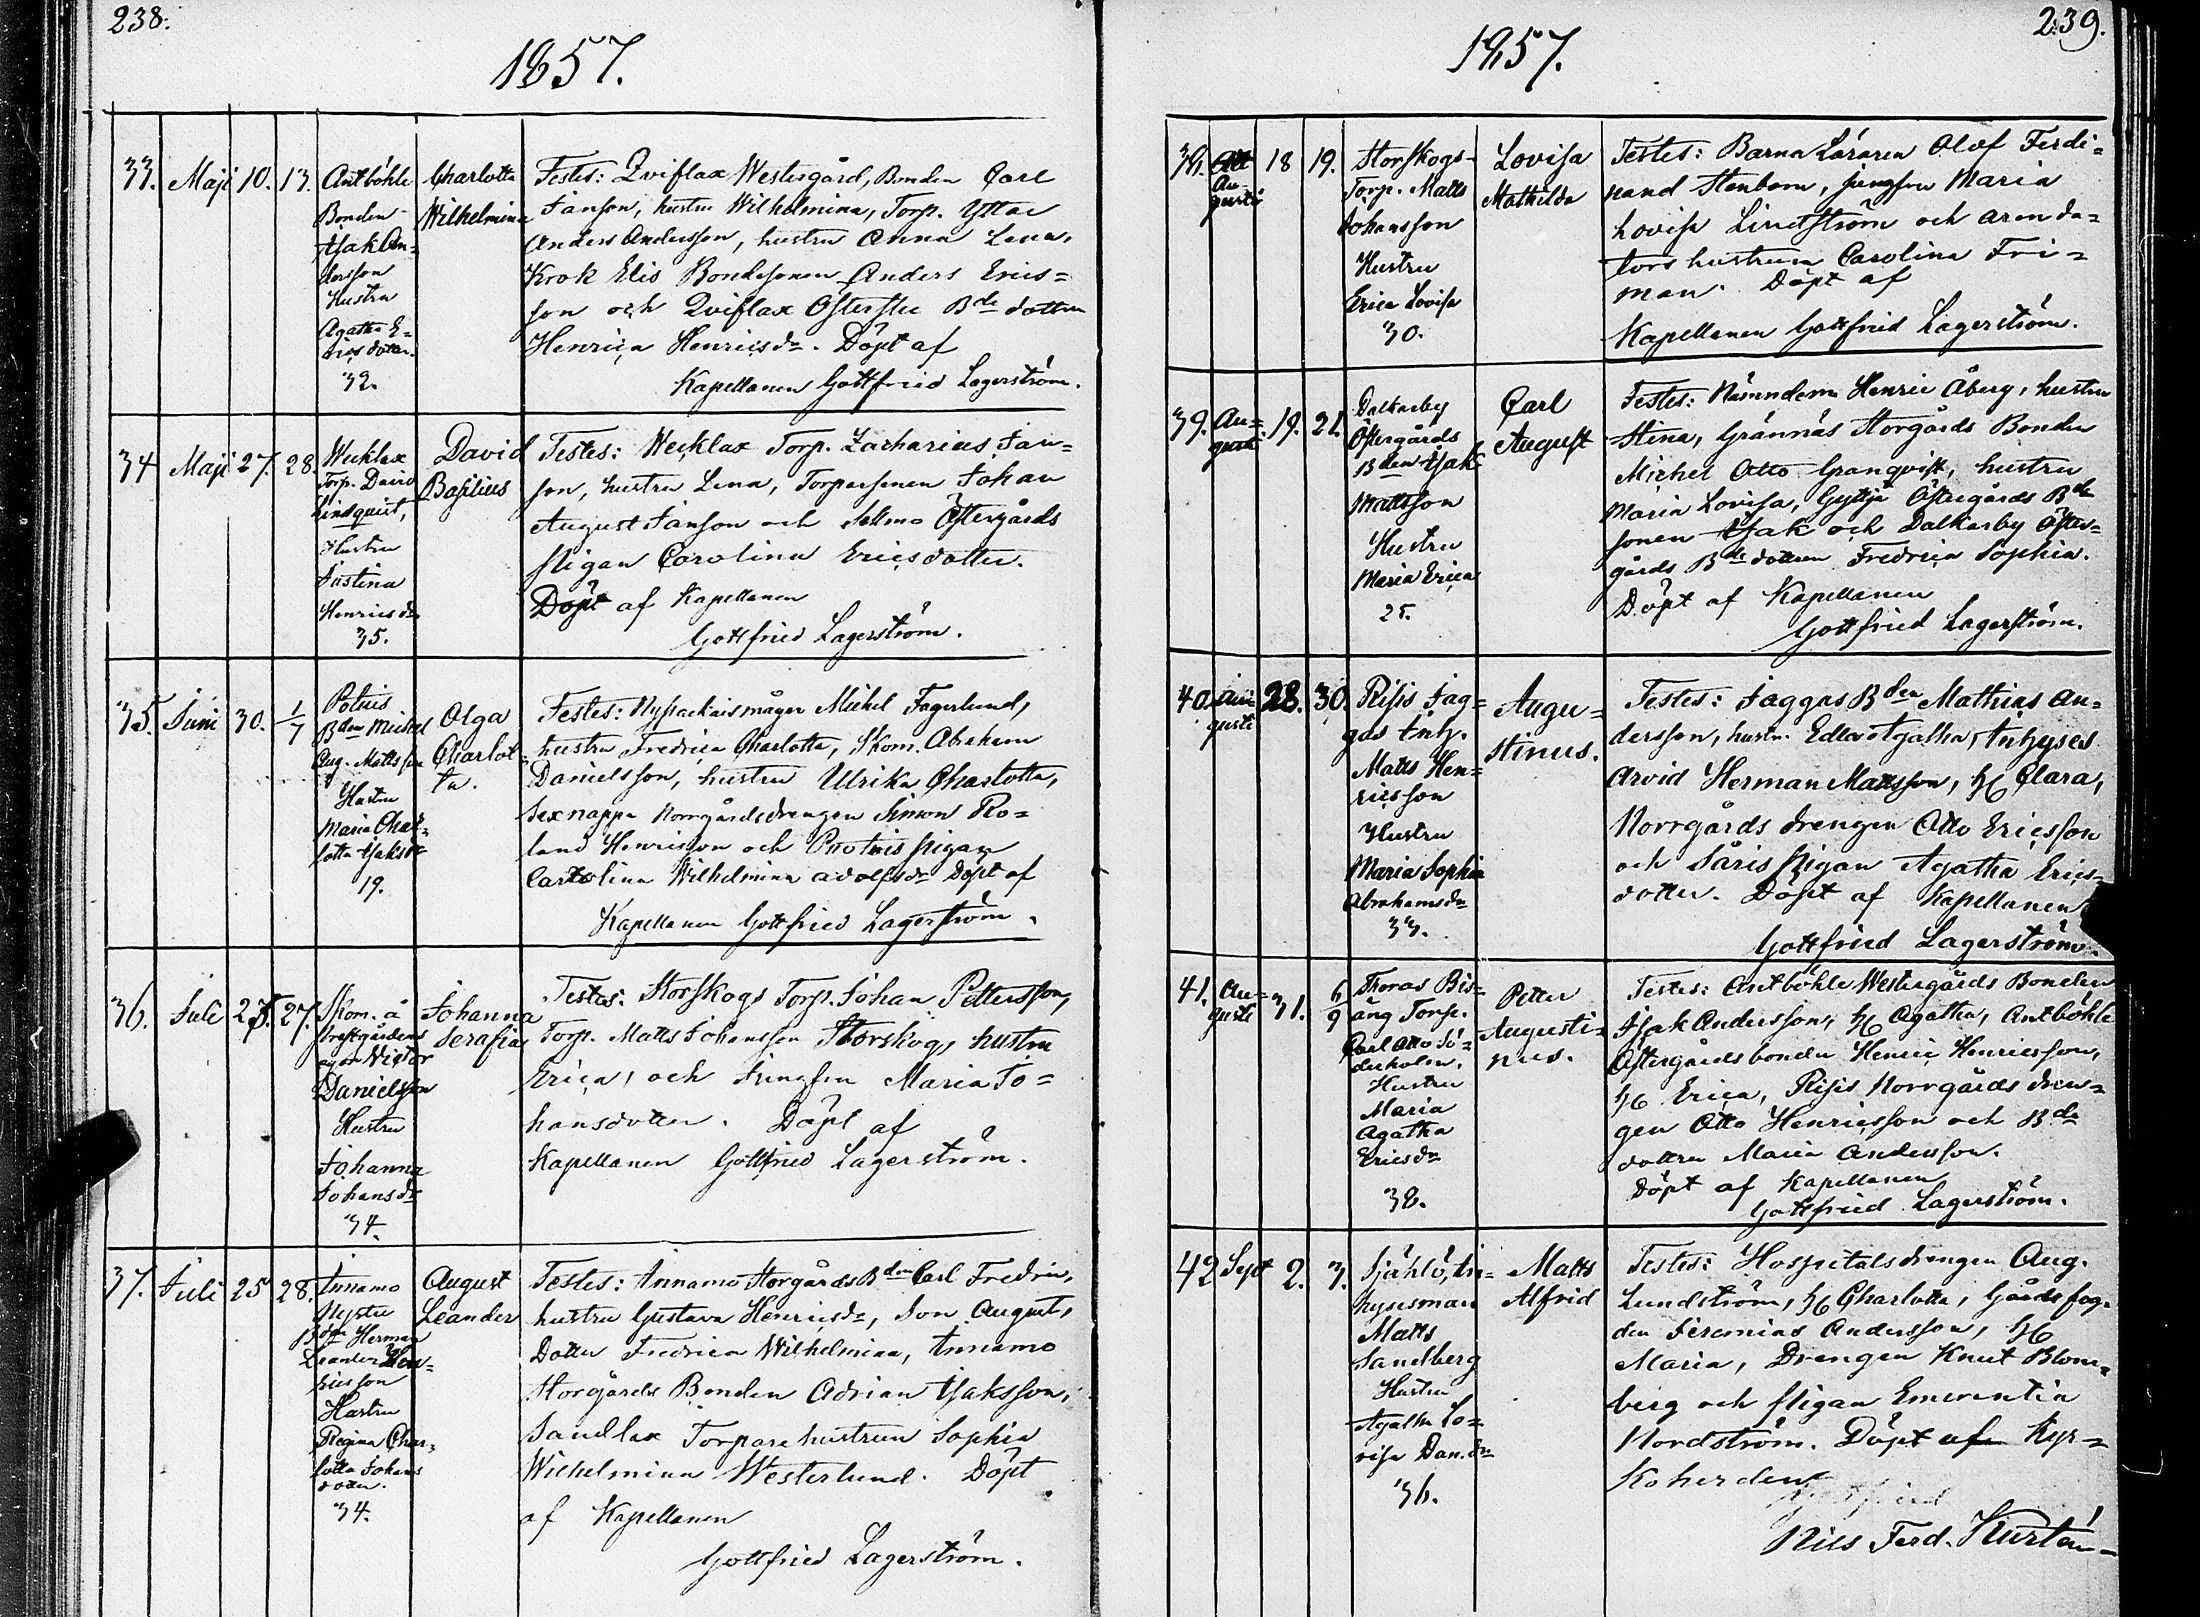 238.
1857.
33. Maji 10. 13.
Antböhle
Bonden
Isak An-
dersson
Hustru
Agatha E-
ricsdotter.
32.
Charlotta
Wilhelmina
Testes: Qviflax Westergård, Bonden Carl
Janson, hustru Wilhelmina, Torp. Yttar
Anders Andersson, hustru Anna Lena,
Krok Elis Bondesonen Anders Erics=
son och Qviflax Österstu Bde dottren
Henrica Henricsdr. Döpt af
Kapellanen Gottfried Lagerström.
34 Maji 27. 28.
Wecklax
Torp. David
Lindquist,
Hustru
Justina
Henricsdr
35.
David
Basilius
Testes: Wecklax Torp. Zacharias Jan=
son, hustru Lena, Torparsonen Johan
August Janson och Sellmo Östergårds
pigan Carolina Ericsdotter.
Döpt af Kapellanen
Gottfried Lagerström.
35. Juni 30. 1/7
Bden Michel
Aug. Mattsson
Hustru
Maria Char=
lotta Isaksdr
19.
Olga
Charlot=
ta.
Testes: Michel Fagerlund,
hustru Fredrica Charlotta, Skom. Abraham
Danielsson, hustru Ulrika Charlotta,
Sexnappa Norrgårdsdrengen Simon Ro=
land Henricsson och pigan
Carolina Wilhelmina Adolfsdr Döpt af
Kapellanen Gottfried Lagerström.
36. Juli 25. 27.
Skom. å
Prestgårdens
Victor
Danielsson
Hustru
Johanna
Johansdr
34.
Johanna
Serafia
Testes: Storskogs Torp. Johan Pettersson,
Torp. Matts Johansson Storskog, hustru
Erica, och Jungfru Maria Jo=
hansdotter. Döpt af
Kapellanen Gottfried Lagerström.
37. Juli 25 28.
Innamo
Nystu
Bde Herman
Leander Hen=
ricsson
Hustru
Regina Char=
lotta Johans
dotter.
34.
August
Leander
Testes: Innamo Storgårds Bden Carl Fredric,
hustru Gustava Henricsdr, Son August,
Dotter Fredrica Wilhelmina, Innamo
Storgårds Bonden Adrian Isaksson,
Sandlax Torpare hustrun Sophia
Wilhelmina Westerlund. Döpt
af Kapellanen
Gottfried Lagerström.
239.
1857.
38. Au-
gusti 18 19.
Storskogs-
Torp. Matts
Johansson
Hustru
Erica Lovisa
30.
Lovisa
Mathilda
Testes: Barna Läraren Olof Ferdi=
nand Stenbom, jungfru Maria
Lovisa Lindström och arenda=
tors hustrun Carolina Fri=
man. Döpt af
Kapellanen Gottfried Lagerström.
39. Au=
gusti 19. 21.
Dalkarby
Östergårds
Bden Isak
Mattsson
Hustru
Maria Erica
25.
Carl
August
Testes: Nämndem Henric Åberg, hustru
Stina, Grännäs Storgårds Bonden
Michel Otto Granqvist, hustru
Maria Lovisa, Gyttja Östergårds Bde
sonen Isak och Dalkarby Öster=
gårds Bde dottren Fredrica Sophia.
Döpt af Kapellanen
Gottfried Lagerström.
40. Au
gusti 28. 30.
Risis Jag=
gas Inh.
Matts Hen=
ricsson
Hustru
Maria Sophia
Abrahamsdr
33.
Augu=
stinus.
Testes: Jaggas Bden Mathias An=
dersson, hustr. Edla Agatha, Inhyses
Arvid Herman Mattsson, H Clara,
Norrgårds drengen Otto Ericsson
och Säris pigan Agatha Erics=
dotter. Döpt af Kapellanen
Gottfried Lagerström.
41. Au=
gusti 31. 6/9
Thoras Bis=
äng Torp.
Carl Otto Sö=
derholm.
Hustru
Maria
Agatha
Ericsdr
38.
Petter
Augusti=
nus.
Testes: Antböhle Westergårds Bonden
Isak Andersson, H Agatha, Antböhle
Östergårds bonden Henric Henricsson,
H Erica, Risis Norrgårds dren=
gen Otto Henricsson och Bde
dottren Maria Andersson.
Döpt af Kapellanen
Gottfried Lagerström.
42 Sept 2. 3.
Själö, In=
hysesman
Matts
Sandberg
Hustru
Agatha Lo=
visa Dan.dr
36.
Matts
Alfrid
Testes: Hospitalsdrengen Aug.
Lundström, H Charlotta, Gårdsfog=
den Jeremias Andersson, H
Maria, Drengen Knut Blom=
berg och pigan Emerentia
Nordström. Döpt af Kyr=
koherden
Nils Ferd. Kurtén